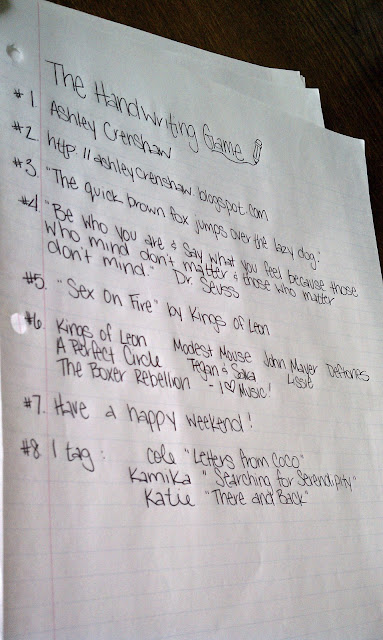 The Handwriting Game
#1. Ashley Crenshaw
#2 http://ashleycrenshaw.blogspot.com
#3. "The quick brown fox jumps over the lazy dog."
#4. "Be who you are & say what you feel because those
who mind don't matter & those who matter
don't mind." Dr. Seuss
#5. "Sex on Fire" by Kings of Leon
#6. Kings of Leon Modest Mouse John Mayer Deftones
A Perfect Circle Tegan & Sara Lissie
The Boxer Rebellion - I ♡ Music!
#7. Have a happy weekend!
#8. I tag: Cole "Letters from CoCo"
Kamika "Searching for Serendipity"
Katie "There and Back"